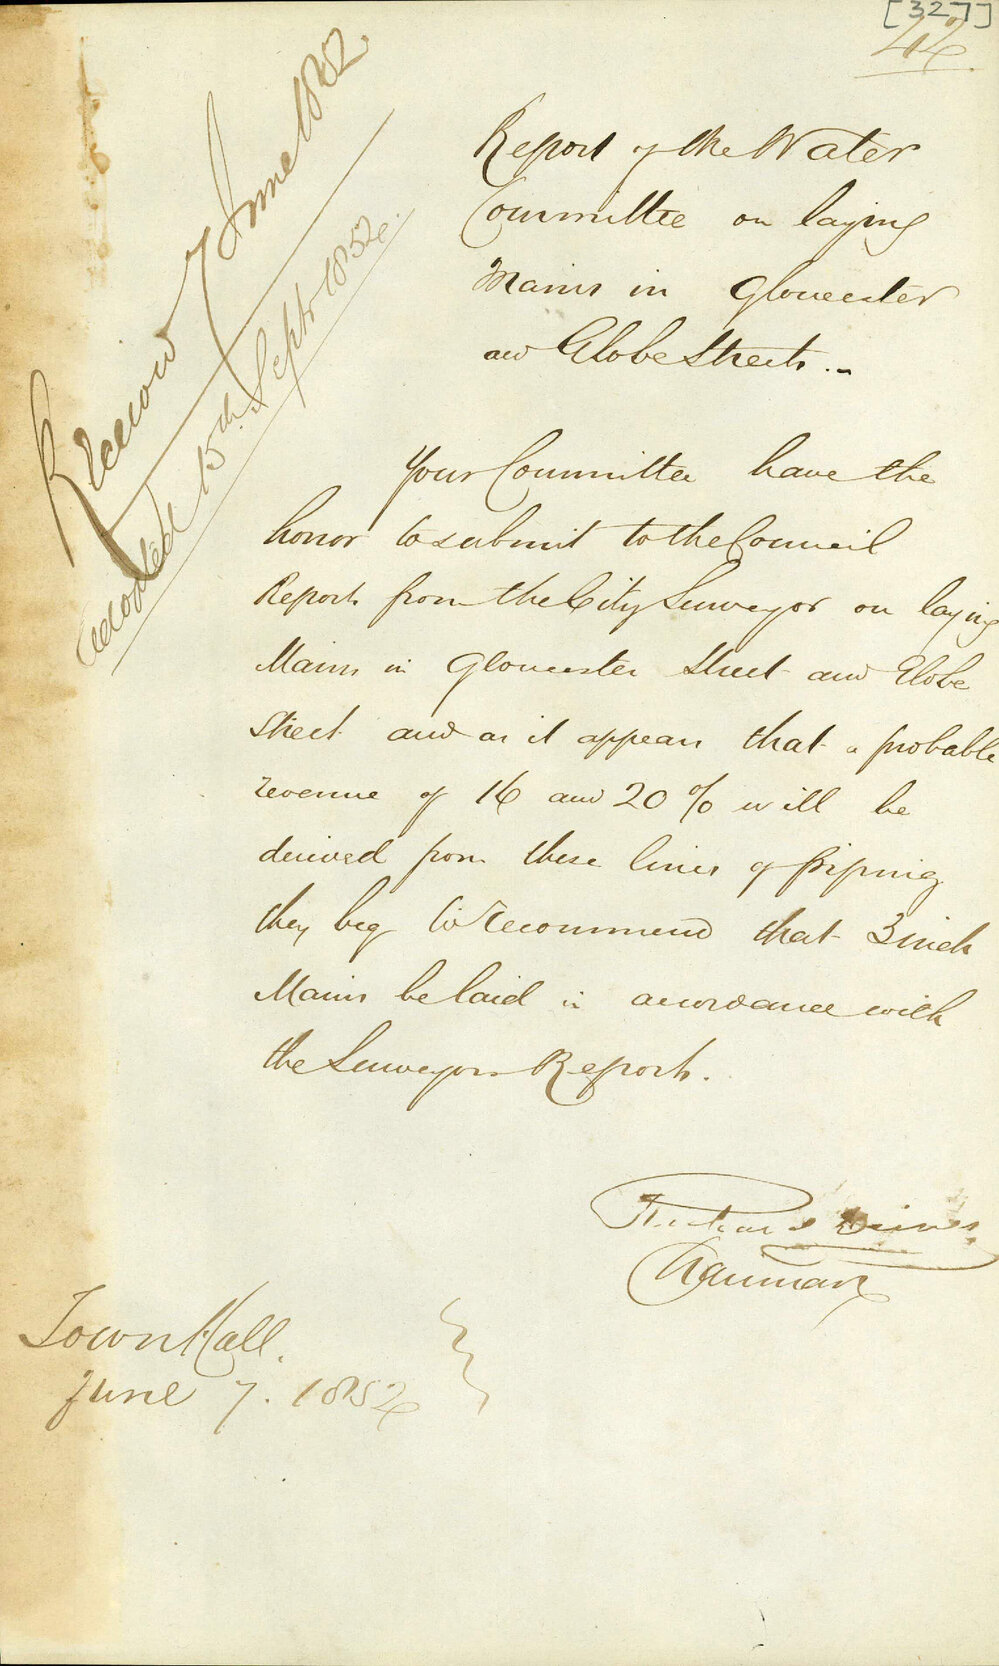 [327]
42
Received 7 June 1852.
Adopted 15th Septr 1852.
Report of the Water
Committee on laying
Mains in Gloucester
and Globe Streets.-
Your Committee have the
honor to submit to the Council
Reports from the City Surveyor on laying
Mains in Gloucester Street and Globe
Street and as it appears that a probable
revenue of 16 and 20 % will be
derived from these lines of piping
they beg to recommend that 3 inch
Mains be laid in accordance with
the Surveyors Reports.
Richard Driver
Chairman
Town Hall.
June 7. 1852